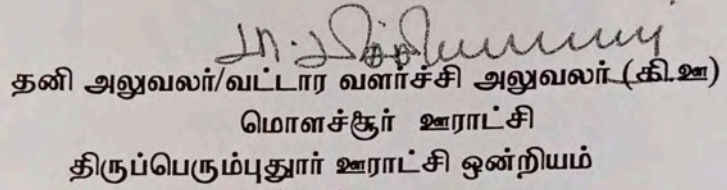 தனி அலுவலர்/வட்டார வளர்ச்சி அலுவலர் (கி.ஊ)
மொளச்சூர் ஊராட்சி
திருப்பெரும்புதூார் ஊராட்சி ஒன்றியம்